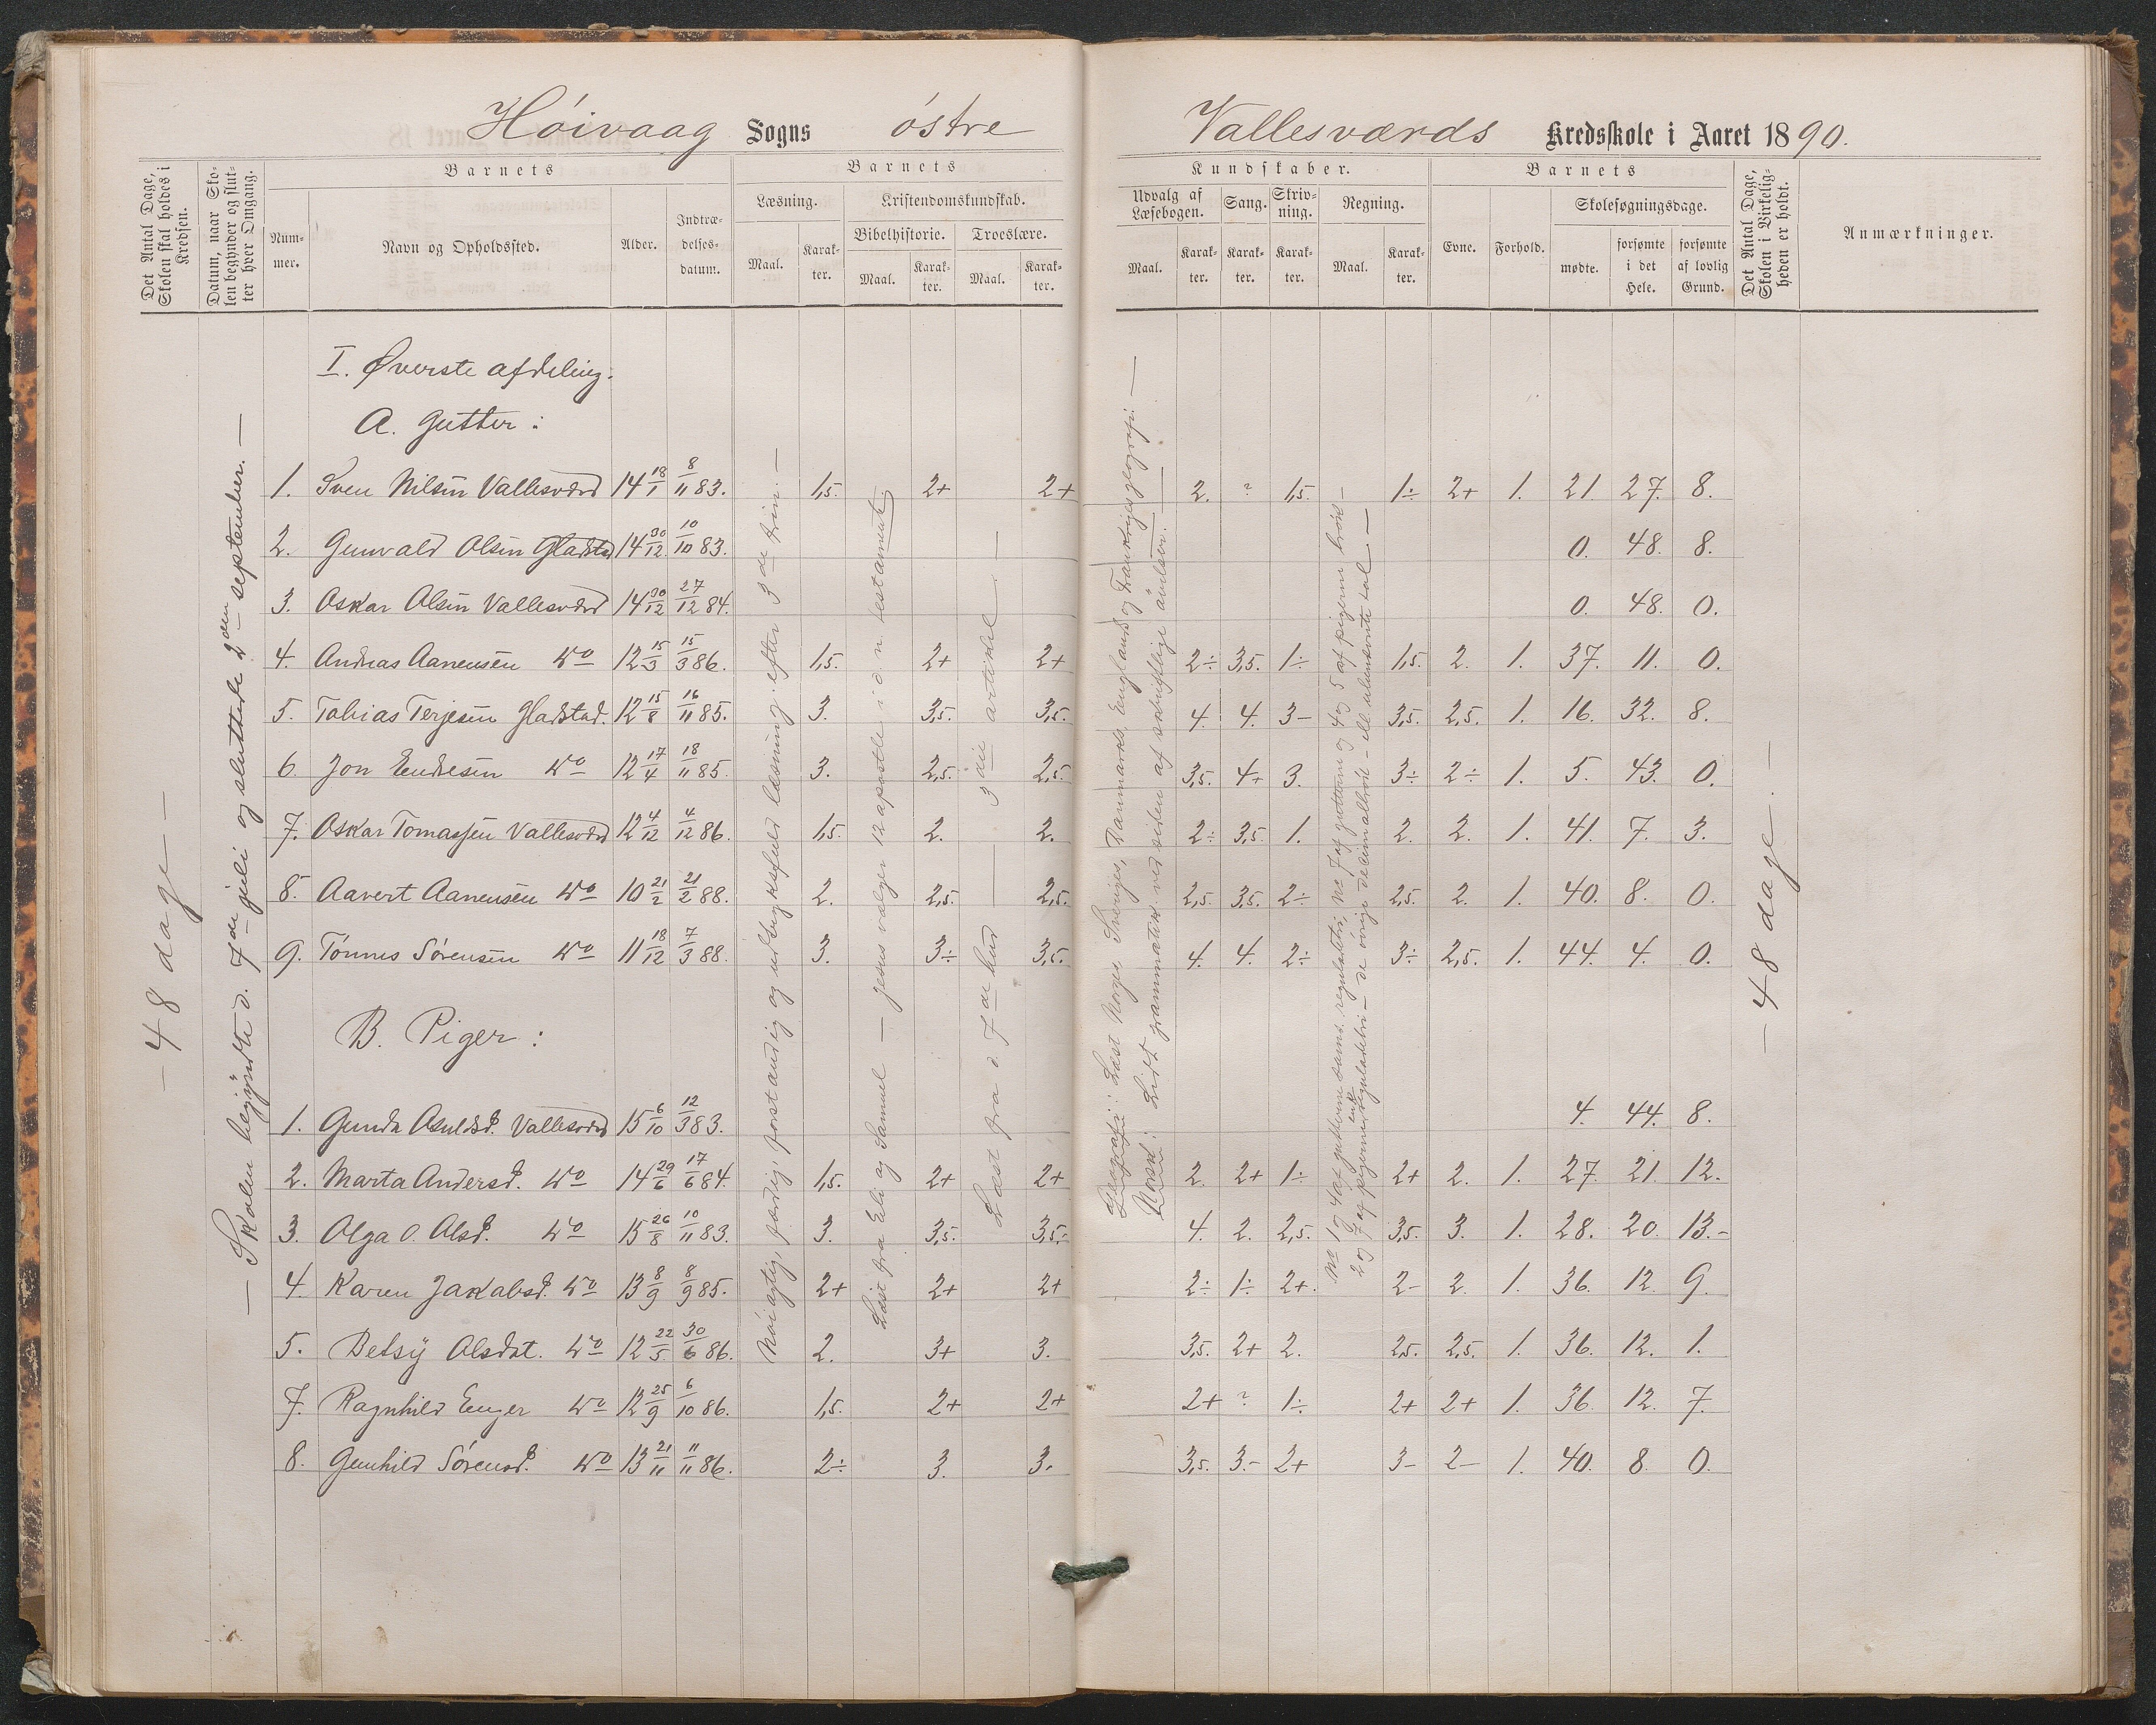 Höivaag Sogns östre Vallesværds Kredsskole i Aaret 1890.
Det Antal Dage, Skolen skal holdes i Kredsen.
Datum, naar Skolen begynder og slutter hver Omgang.
Barnets
Nummer.
Navn og Opholdssted.
Alder.
Indtrædelsesdatum.
Barnets
Læsning.
Maal.
Karakter.
Kristendomskundskab.
Bibelhistorie.
Maal.
Karakter.
Troeslære.
Maal.
Karakter.
Kundskaber.
Udvalg af Læsebogen.
Maal.
Karakter.
Sang.
Karakter.
Skrivning.
Karakter.
Regning.
Maal.
Karakter.
Barnets
Evne.
Forhold.
Skolesøgningsdage.
mødte.
forsømte i det Hele.
forsømte af lovlig Grund.
Det Antal Dage, Skolen i Virkeligheden er holdt.
Anmærkninger.
— 48 dage —
— Skolen begyndte d. 7de juli og sluttede 2den september. —
I. Øverste afdeling.
A. Gutter:
1. Sven Nilsen Vallesværd 14 18/1 8/11 83. 1,5. 2+ 2+ 2. ? 1,5. 1÷ 2+ 1. 21 27. 8.
2. Gunvald Olsen Gladstad 14 30/12 10/10 83. 0. 48. 8.
3. Oskar Olsen Vallesværd 14 30/12 27/12 84. 0. 48. 0.
4. Andreas Aanensen do 12 15/3 15/3 86. 1,5. 2+ 2+ 2÷ 3,5. 1÷ 1,5. 2. 1. 37. 11. 0.
5. Tobias Terjesen Gladstad. 12 15/8 16/11 85. 3. 3,5. 3,5. 4. 4. 3- 3,5. 2,5. 1. 16. 32. 8.
6. Jon Endresen do 12 17/4 18/11 85. 3. 2,5. 2,5. 3,5. 4+ 3. 3÷ 2÷ 1. 5. 43. 0.
7. Oskar Tomassen Vallesværd 12 4/12 4/12 86. 1,5. 2. 2. 2÷ 3,5. 1. 2. 2. 1. 41. 7. 3.
8. Aavert Aanensen do 10 21/2 21/2 88. 2. 2,5. 2,5. 2,5. 3,5. 2÷ 2,5. 2. 1. 40. 8. 0.
9. Tönnes Sörensen do 11 18/12 7/3 88. 3. 3÷ 3,5. 4. 4. 2÷ 3÷ 2,5. 1. 44. 4. 0.
B. Piger:
1. Gunda Asuldsd. Vallesværd 15 6/10 12/3 83. 4. 44. 8.
2. Marta Andersd. do 14 29/6 17/6 84. 1,5. 2+ 2+ 2. 2+ 1÷ 2+ 2. 1. 27. 21. 12.
3. Olga O. Olsd. do 15 26/8 10/11 83. 3. 3,5. 3,5. 4. 2. 2,5. 3,5. 3. 1. 28. 20. 13.-
4. Karen Jakobsd. do 13 8/9 8/9 85. 2+ 2+ 2+ 2÷ 1÷ 2+. 2- 2. 1. 36. 12. 9.
5. Betsy Olsdat. do 12 22/5 30/6 86. 2. 3+ 3. 3,5. 2+ 2. 2,5. 2,5. 1. 36. 12. 1.
7. Ragnhild Enger do 12 25/9 6/10 86. 1,5. 2+ 2+ 2+ ? 1÷ 2+ 2+ 1. 36. 12. 7.
8. Gunhild Sörensd. do 13 21/11 11/11 86. 2÷ 3. 3. 3,5. 3.- 2+ 3- 2- 1. 40. 8. 0.
Nöiagtig, færdig, forstandig og udtryksfuld læsning efter 3de trin. —
Læst fra Eli og Samuel — Jesus vælger 12 apostle i d. n. testamente.
Læst fra d. 7de bud — 3die artikel —
Geografi: Læst Norges, Sveriges, Danmarks, Englands og Frankriges geografi. —
Norsk: Lidt grammatik ved siden af skriftlige övelser. —
No 1 og 4 af gutterne samt reguladetri, No 7 af gutterne og 4 og 5 af pigerne brök —
2 og 7 af pigerne enk reguladetri — de övrige decimalbrök — ell. ubenævnte tal —
— 48 dage. —